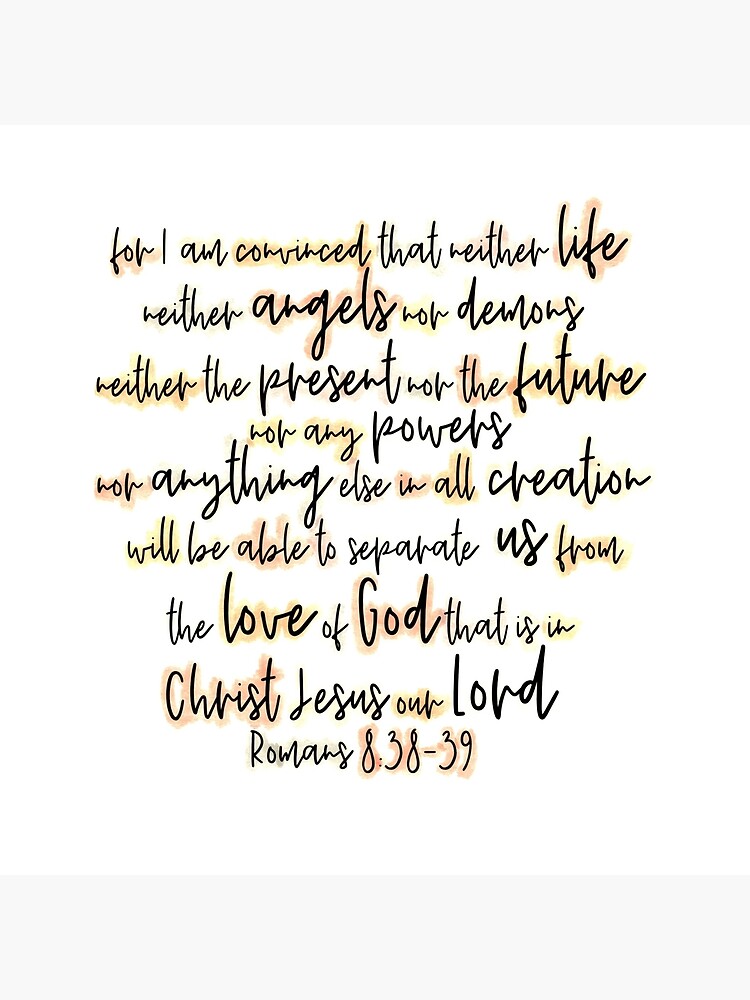 for I am convinced that neither life
neither angels nor demons
neither the present nor the future
nor any powers
nor anything else in all creation
will be able to separate us from
the love of God that is in
Christ Jesus our Lord
Romans 8:38-39